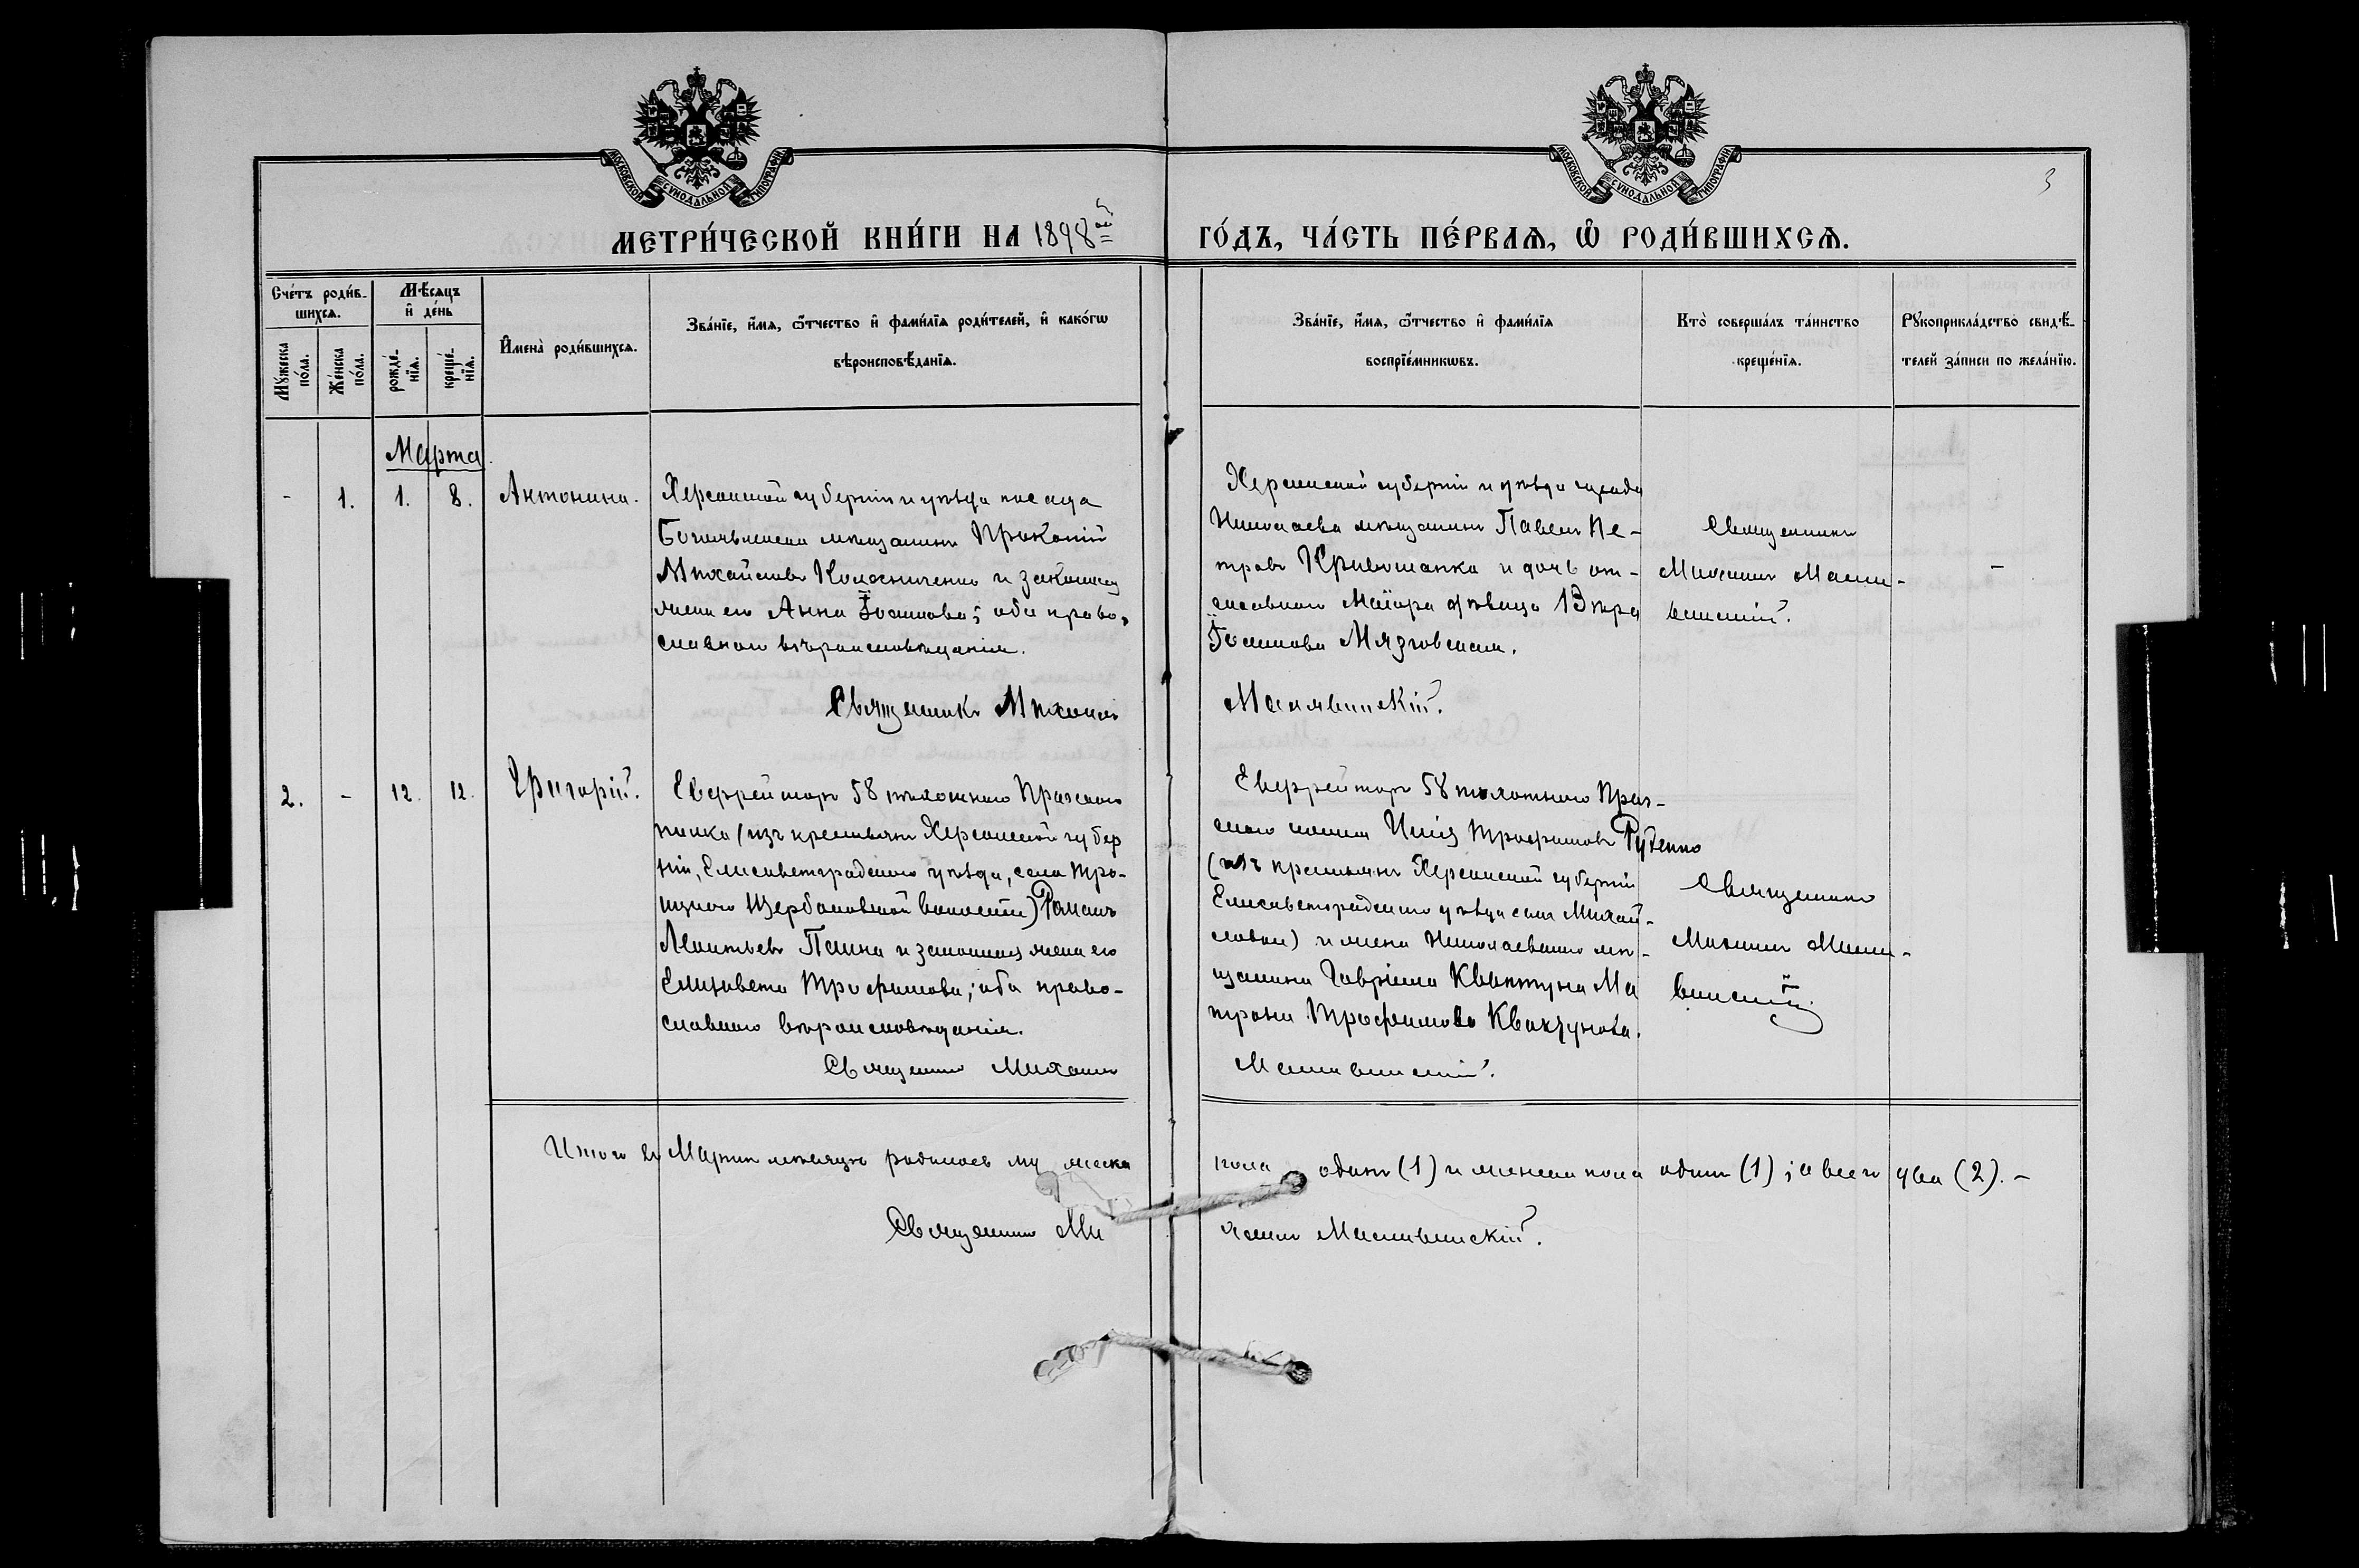 МОСКОВСКОЙ СѴНОДАЛЬНОЙ ТИПОГРАФІИ
МОСКОВСКОЙ СѴНОДАЛЬНОЙ ТИПОГРАФІИ
3
МЕТРИ́ЧЕСКОЙ КНИ́ГИ НА 1898ой
ГО́ДЪ, ЧА́СТЬ ПЕ́РВАѦ, Ѡ РОДИ́ВШИХСѦ.
Сче́тъ роди́в-
шихсѧ.
Мꙋ́жеска по́ла.
Же́нска по́ла.
Мѣ́сѧцъ
и҆ де́нь
рожде́-
нїѧ.
креще́-
нїѧ.
И҆мена̀ роди́вшихсѧ.
Зва́нїе, и҆́мѧ, ѻ҆́тчество и҆ фами́лїѧ роди́телей, и҆ како́гѡ
вѣроисповѣ́данїѧ.
Зва́нїе, и҆́мѧ, ѻ҆́тчество и҆ фами́лїѧ
воспрїе́мникѡвъ.
Кто̀ соверша́лъ та́инство
креще́нїѧ.
Рꙋкоприкла́дство свидѣ́-
телей за́писи по жела́нїю.
Марта
-
1.
1.
8.
Антонина.
Херсонской губерніи и уѣзда посада
Богоявленска мѣщанинъ Прокопій
Михайловъ Колесниченко и законная
жена его Анна Іоаннова; оба право-
славнаго вѣроисповѣданія.
Священникъ Михаилъ
Херсонской губерніи и уѣзда города
Николаева мѣщанинъ Павелъ Пе-
тровъ Кривошапка и дочь от-
ставного Маіора дѣвица Вѣра
Іоаннова
Малявинскій.
Священникъ
Михаилъ Маля-
винскій.
-
2.
-
12.
12.
Григорій.
Ефрейторъ 58 пѣхотнаго Прагскаго
полка (изъ крестьянъ Херсонской губер
ніи, Елисаветградскаго уѣзда, села Тро-
ицкаго Щербановской волости) Романъ
Леонтьевъ и законная жена его
Елизавета Трофимова; оба право-
славнаго вѣроисповѣданія.
Священникъ Михаилъ
Ефрейторъ 58 пѣхотнаго Праг-
скаго полка Илія Трофимовъ Руденко
(изъ крестьянъ Херсонской губерніи
Елисаветградскаго уѣзда села Михай-
ловки) и жена Николаевскаго мѣ-
щанина Гавріила Квактуна Ма
трона Трофимова Квактунова.
Малявинскій.
Священникъ
Михаилъ Маля-
винскій.
Итого въ Мартѣ мѣсяцѣ родилось мужеска
пола одинъ (1) и женска пола одинъ (1); а всего два (2). -
Священникъ Ми
хаилъ Малявинскій.